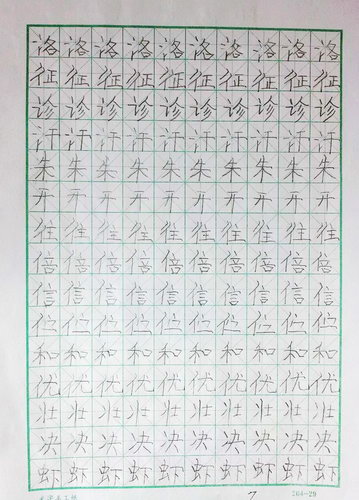 洛洛洛洛洛洛洛洛洛洛
征征征征征征征征征征
诊诊诊诊诊诊诊诊诊诊
汗汗汗汗汗汗汗汗汗汗
朱朱朱朱朱朱朱朱朱朱
开开开开开开开开开开
往往往往往往往往往往
倍倍倍倍倍倍倍倍倍倍
信信信信信信信信信信
位位位位位位位位位位
和和和和和和和和和和
优优优优优优优优优优
壮壮壮壮壮壮壮壮壮壮
决决决决决决决决决决
虾虾虾虾虾虾虾虾虾虾
7